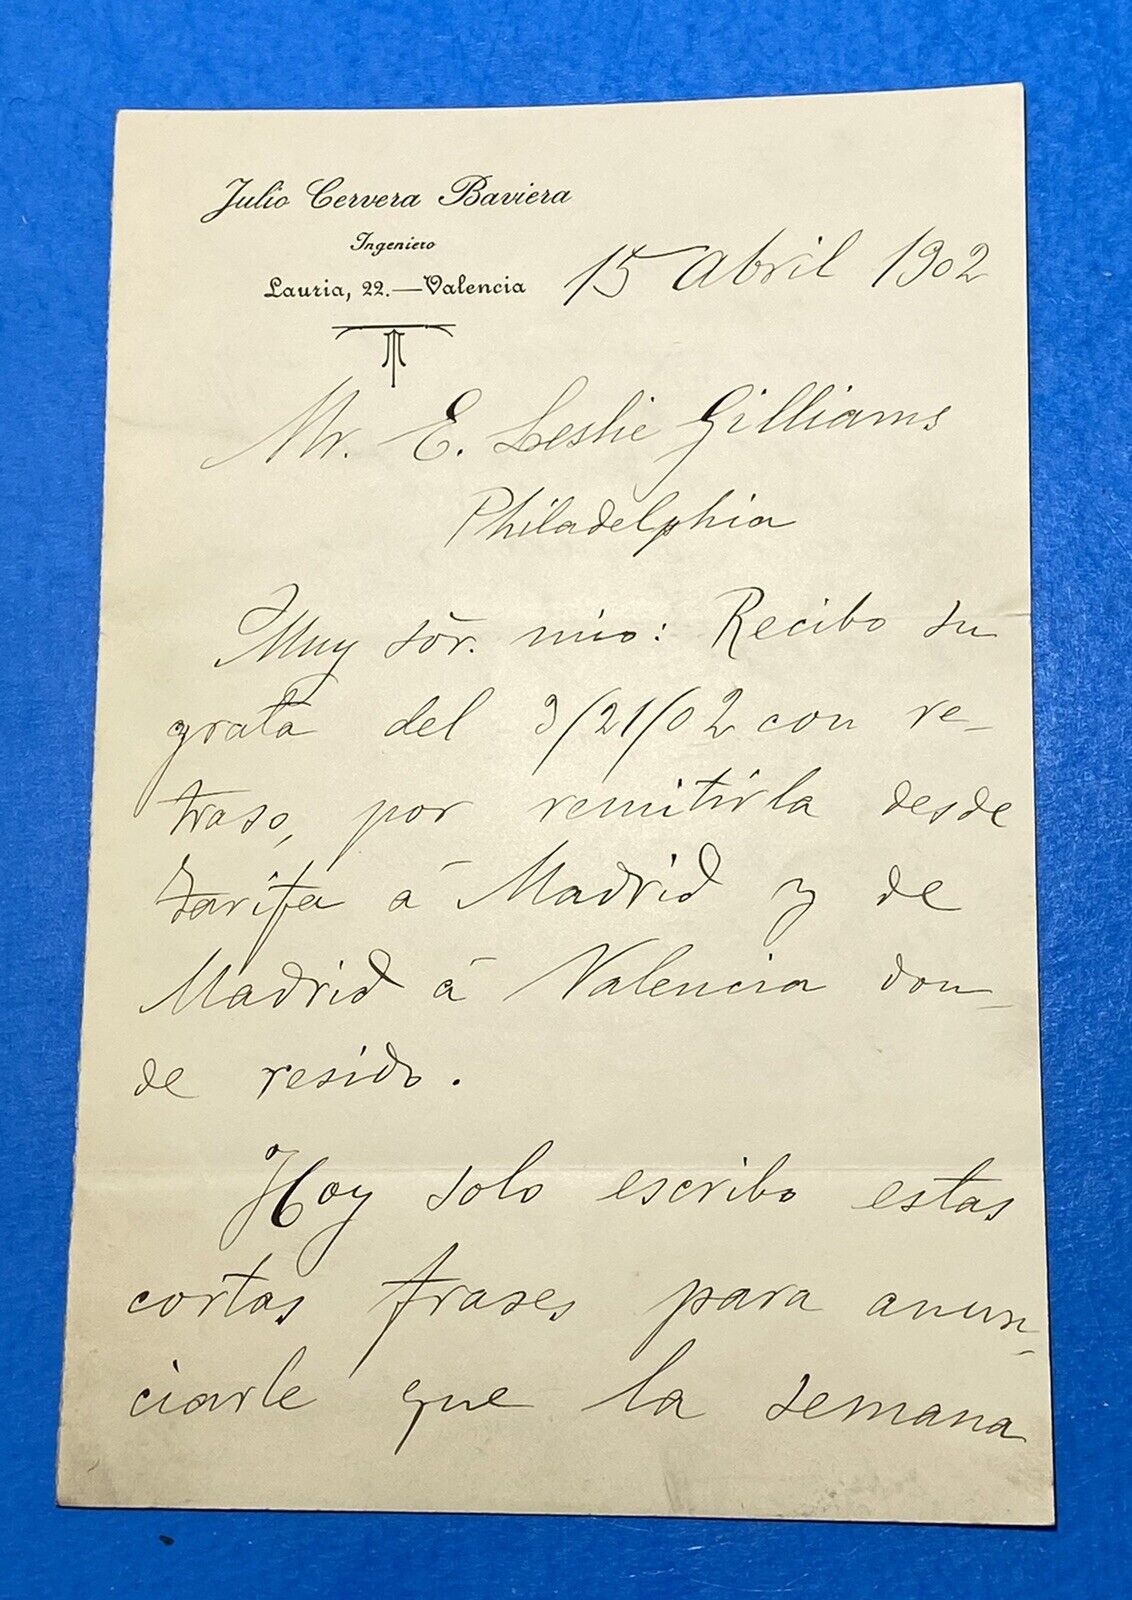 Julio Cervera Baviera
Ingeniero
Lauria, 22.—Valencia
15 Abril 1902
Mr. E. Leslie Gilliams
Philadelphia
Muy sör. mio: Recibo su
grata del 3/21/02 con re-
traso, por remitirla desde
Tarifa á Madrid y de
Madrid á Valencia don-
de resido.
Hoy solo escribo estas
cortas frases para anun-
ciarle que la semana